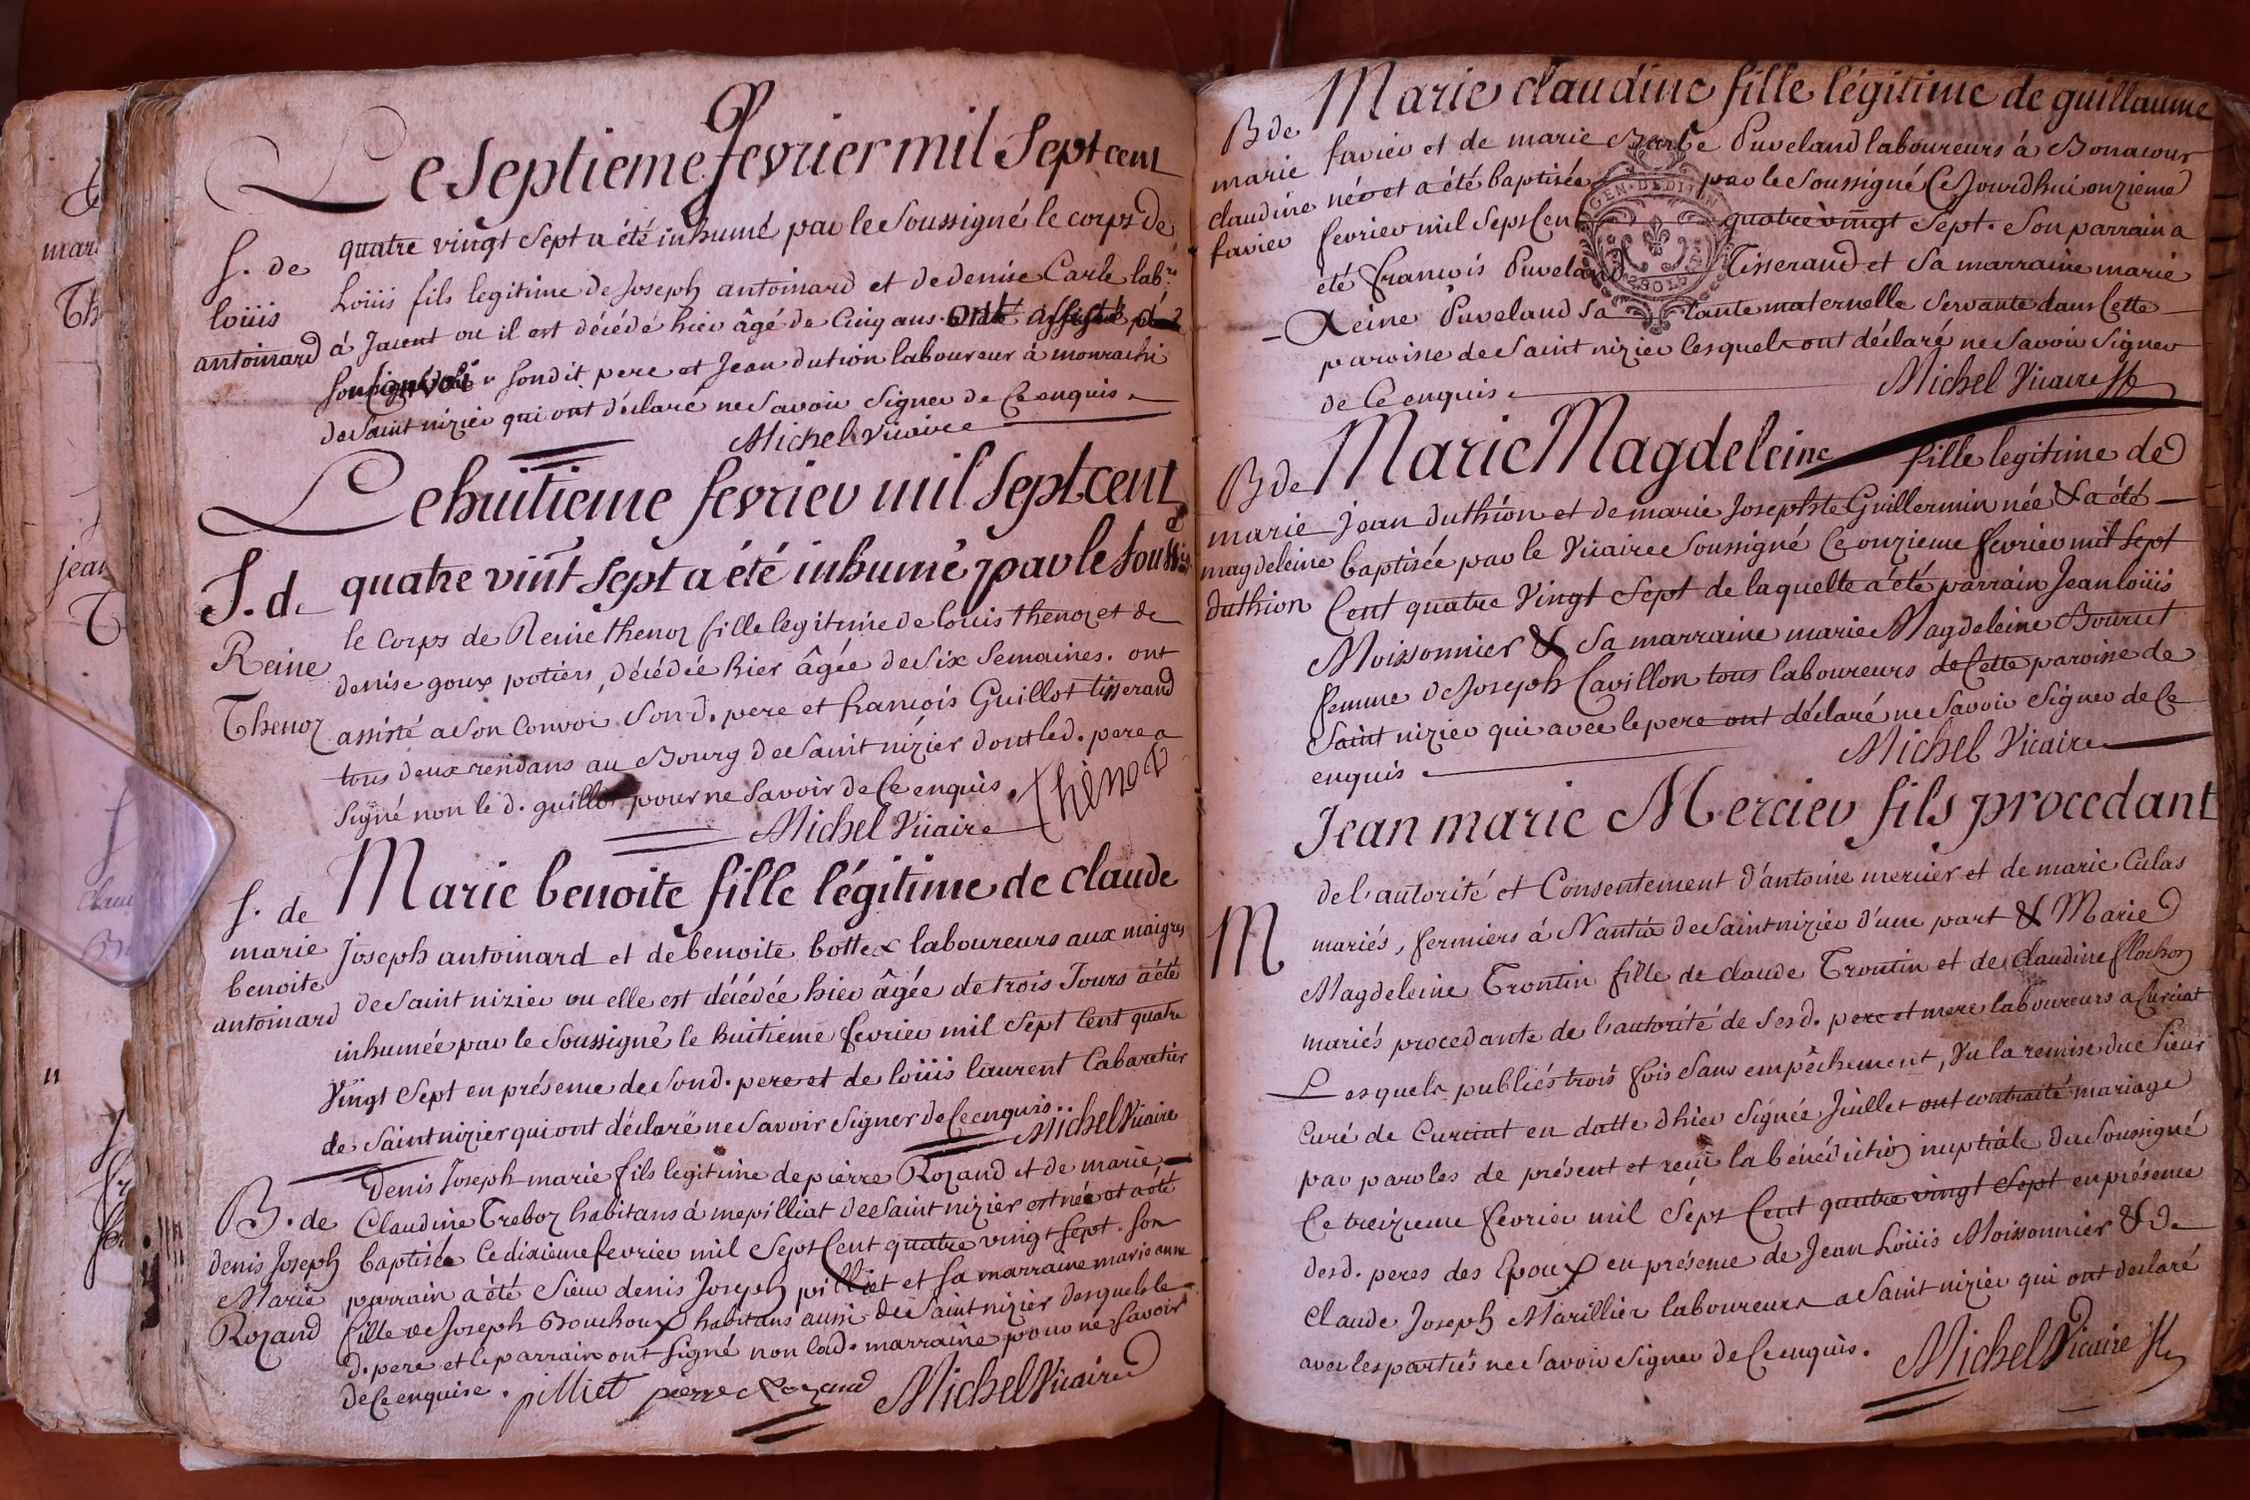 Le septieme fevrier mil sept cent
quatre vingt sept a été inhumé par le soussigné le corps de
S. de
loüis
antoinard
Loüis fils legitime de Joseph antoinard et de denise Carle lab.rs
à Jaient ou il est décédé hier âgé de Cinq ans. ont assisté
son dit pere et Jean dution laboureur à monrachi
de Saint nizier qui ont déclaré ne Savoir Signer de Ce enquis.
Michel Vicaire
Le huitieme fevrier mil sept cent
quatre vint sept a été inhumé par le Sous
S. de
Reine
Thenoz
le Corps de Reine thenoz fille legitime de louis thenoz et de
denise goux potiers, décédée hier âgée de Six Semaines. ont
assisté a son Convoi Son d. pere et françois Guillot tisserand
tous deux residans au Bourg de Saint nizier dont led. pere a
Signé non le d. guillot pour ne Savoir de Ce enquis.
Michel Vicaire Thénoz
Marie benoite fille légitime de claude
S. de
marie
benoite
antoinard
Joseph antoinard et de benoite bottex laboureurs aux maigres
de Saint nizier ou elle est décédée hier âgée de trois Jours a été
inhumée par le Soussigné le huitiéme fevrier mil Sept Cent quatre
Vingt Sept en présence de Son d. pere et de loüis laurent Cabaretier
de Saint nizier qui ont déclaré ne Savoir Signer de Ce enquis..
Michel Vicaire
B. de
denis Joseph
Marie
Rozand
Denis Joseph marie fils legitime de pierre Rozand et de marie
Claudine Treboz habitans à mepilliat de Saint nizier est née et a été
baptisée Ce dixieme fevrier mil Sept Cent quatre vingt Sept. Son
parrain a été Sieur denis Joseph pilliet et Sa marraine marie anne
fille de Joseph Bouchoux habitans aussi de Saint nizier desquels le
d. pere et le parrain ont Signé non lad. marraine pour ne Savoir
de Ce enquise. pilliet pierre Rozand Michel Vicaire
Marie claudine fille légitime de guillaume
B de
marie
claudine
favier
favier et de marie Barbe Puveland laboureurs à Bonacour
née et a été baptisée par le Soussigné Ce Jourd'hui onzieme
fevrier mil Sept Cen quatre vingt Sept. Son parrain a
été François Puveland Tisserand et Sa marraine marie
Reine Puveland Sa tante maternelle Servante dans Cette
paroisse de Saint nizier lesquels ont déclaré ne Savoir Signer
de Ce enquis.
Michel Vicaire
Marie Magdeleine fille legitime de
B de
marie
magdeleine
duthion
Jean duthion et de marie Josephte Guillermin née & a été
baptisée par le Vicaire Soussigné Ce onzieme fevrier mil Sept
Cent quatre Vingt Sept de laquelle a été parrain Jean loüis
Moissonnier & Sa marraine marie Magdeleine Bourcet
femme de Joseph Cavillon tous laboureurs de Cette paroisse de
Saint nizier qui avec le pere ont déclaré ne Savoir Signer de Ce
enquis.
Michel Vicaire
Jean marie Mercier fils procedant
M
de l'autorité et Consentement d'antoine mercier et de marie Culas
mariés, fermiers à Nantia de Saint nizier d'une part & Marie
Magdeleine Trontin fille de claude Trontin et de claudine flochon
mariés procedante de l'autorité de Ses d. pere et mere laboureurs a Curciat
Lesquels publiés trois fois Sans empêchement, Vu la remise du Sieur
Curé de Curciat en datte d'hier Signée Juillet ont contracté mariage
par paroles de présent et reçu la bénédiction nuptiale du Soussigné
Ce treizieme fevrier mil Sept Cent quatre vingt Sept en présence
des d. peres des Epoux en présence de Jean Loüis Moissonnier & de
Claude Joseph Marillier laboureurs a Saint nizier qui ont declaré
avec les parties ne Savoir Signer de Ce enquis.
Michel Vicaire